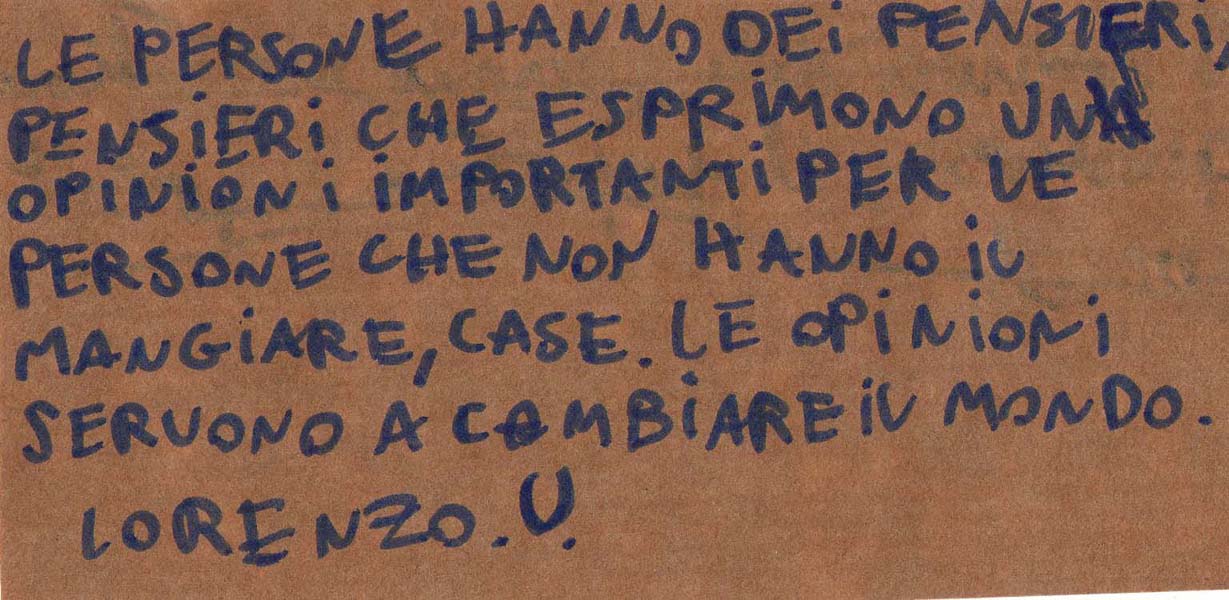 LE PERSONE HANNO DEI PENSIERI,
PENSIERI CHE ESPRIMONO UNA
OPINIONI IMPORTANTI PER LE
PERSONE CHE NON HANNO IL
MANGIARE, CASE. LE OPINIONI
SERVONO A CAMBIARE IL MONDO.
LORENZO. U.